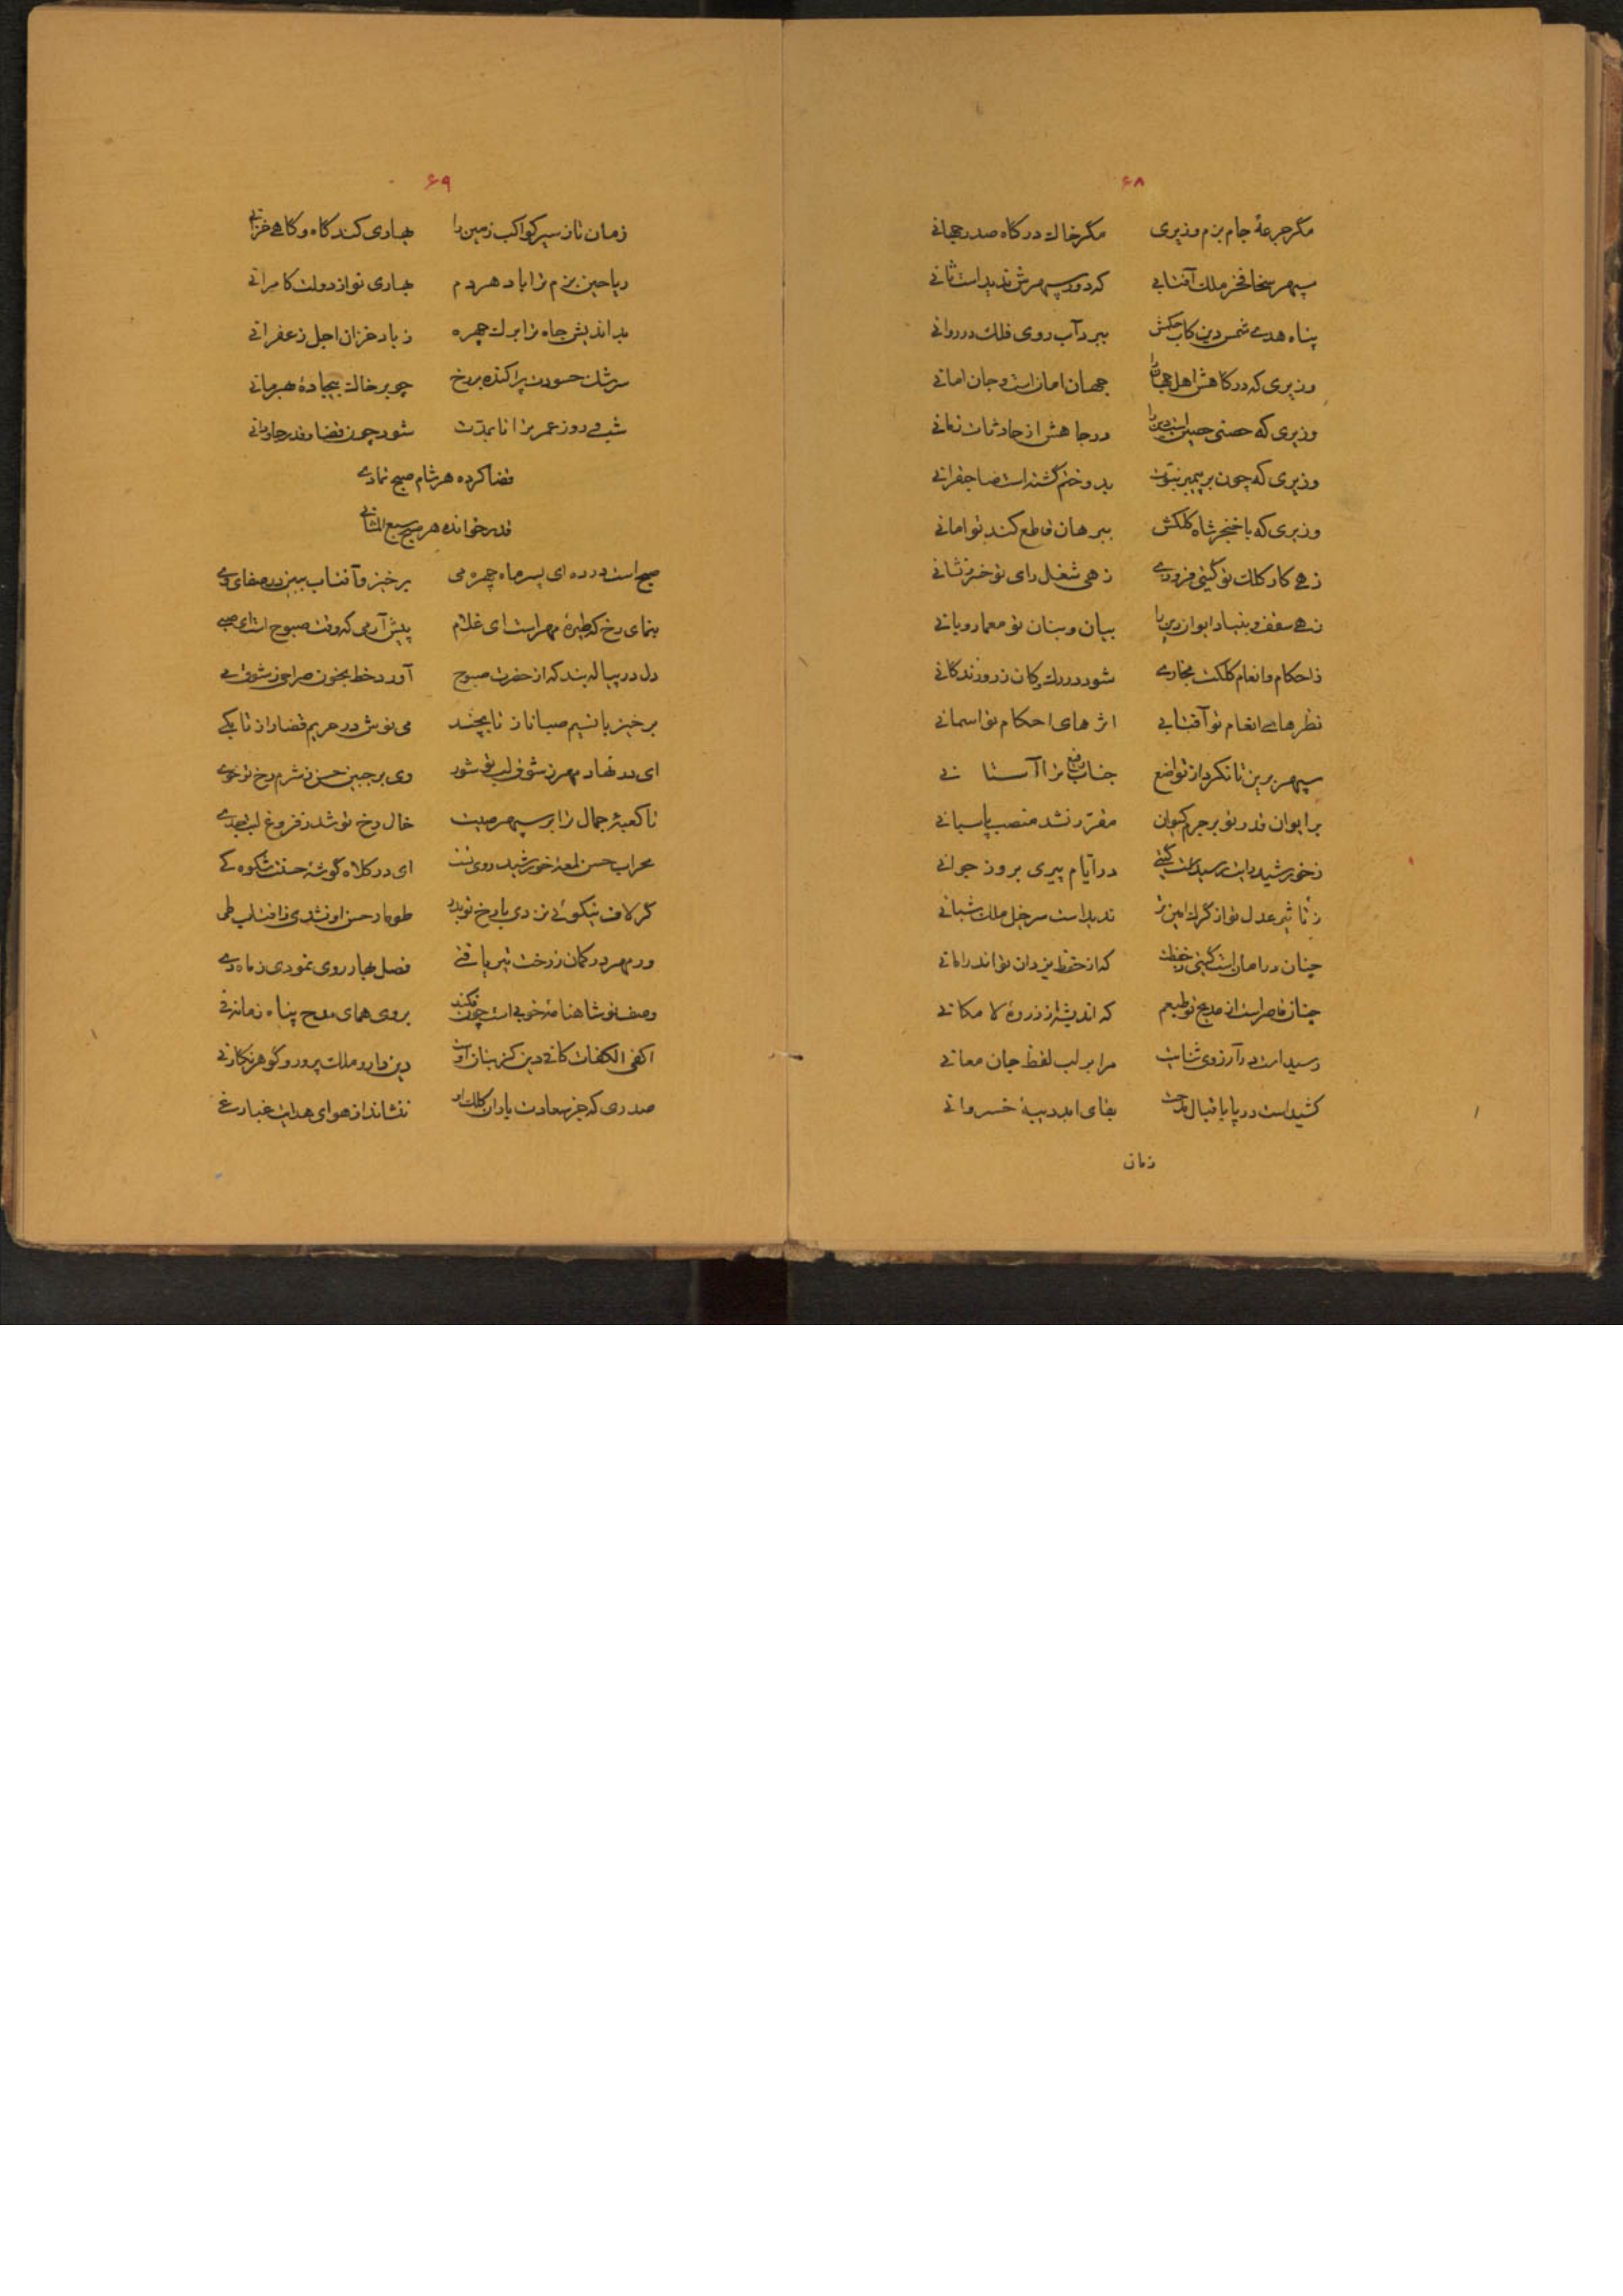 ۶۸
مگر جرعهٔ جام بزم وزیری مگر خاک درکاه صدر جهانی
سپهر سخا فخر ملک آفتابی که دور سپهرش ندیداست ثانی
پناه هدی شمس دین کاب حکمش ببرد آب روی فلک در روانی
وزیری که درکاهش اهل جهانرا جهان امانست و جان امانی
وزیری که حصنی حصین است دین را در جاهش از حادثات زمانی
وزیری که چون بر پیمبر نبوت بدو ختم گشته است صاحبقرانی
وزیری که با خنجر شاه کلکش ببرهان قاطع کند توامانی
زهی کار کلک تو گیتی فروزی زهی شغل رای تو اختر نشانی
زهی سقف و بنیاد ایوان دین را بیان و بنان تو معمار و بانی
ز احکام و انعام کلکت مجاری شود در رک کان زر و زندکانی
نظرهای انعام تو آفتابی اثرهای احکام تو اسمانی
سپهر برین تا نکرد از تواضع جناب رفیع ترا آستانی
بر ایوان قدر تو بر جرم کیوان مقرر نشد منصب پاسبانی
ز خورشید رایت رسیداست گیتی در آیام پیری بروز جوانی
ز تاثیر عدل تو از گرک امین تر ندیداست سرخیل ملک شبانی
چنان در امان است گیتی ز حفظت که از حفظ یزدان تواند امانی
چنان قاصر است از مدیح تو طبعم که اندیشه از ذروهٔ لا مکانی
رسیداست در آرزوی ثنایت مرا بر لب لفظ جان معانی
کشیداست در پا باقبال مدحت بقای ابد دیبهٔ خسروانی
زمان
۶۹
زمان تا ز سیر کواکب زمین را بهاری کند کاه و کاهی خزانی
ریاحین بزم ترا باد هر دم بهاری نو از دولت کامرانی
بداندیش جاه ترا برک چهره ز باد خزان اجل زعفرانی
سرشک حسودت پراکنده بر رخ چو بر خاک بیجادهٔ بهرمانی
شب و روز عمر ترا تا بمدت شود چون قضا و قدر جاودانی
قضا کرده هر شام صبح نمازی
قدر خوانده هر صبح سبع المثانی
صبح است در ده ای پسر ماه چهره می برخیز و آفتاب ببین در صفای وی
بنمای رخ که طیرهٔ مهر است ای غلام پیش آر می که وقت صبوح است ای صبی
دل در پیاله بند که از حضرت صبوح آورد خط بخون صراحی ز شوق می
برخیز با نسیم صبا ناز تا بچند می نوش در حریم قضا راز تا بکی
ای در نهاد مهر ز شوق لب تو شور وی بر جبین حسن ز شرم رخ تو خوی
تا کعبهٔ جمال ترا بر سپهر صیت خال رخ تو شد ز فروغ لب جدی
محراب حسن لمعهٔ خورشید روی تست ای در کلاه گوشهٔ حسنت شکوه کی
گر لاف نیکوئی نزدی با رخ تو بدر طومار حسن او نشدی ز افتاب طی
ور مهر در کمان ز رخت تیر یافتی فصل بهار روی نمودی ز ماه دی
وصف تو شاهنامهٔ خوبی است چون فکند بروی همای مدح پناه زمانه فی
اکفی الکفات کافی دین کز بنان اوست دین دار و ملک پرور و گوهر نکار نی
صدری که جز سعادت باران کلک او ننشاند از هوای هدایت غبار غی